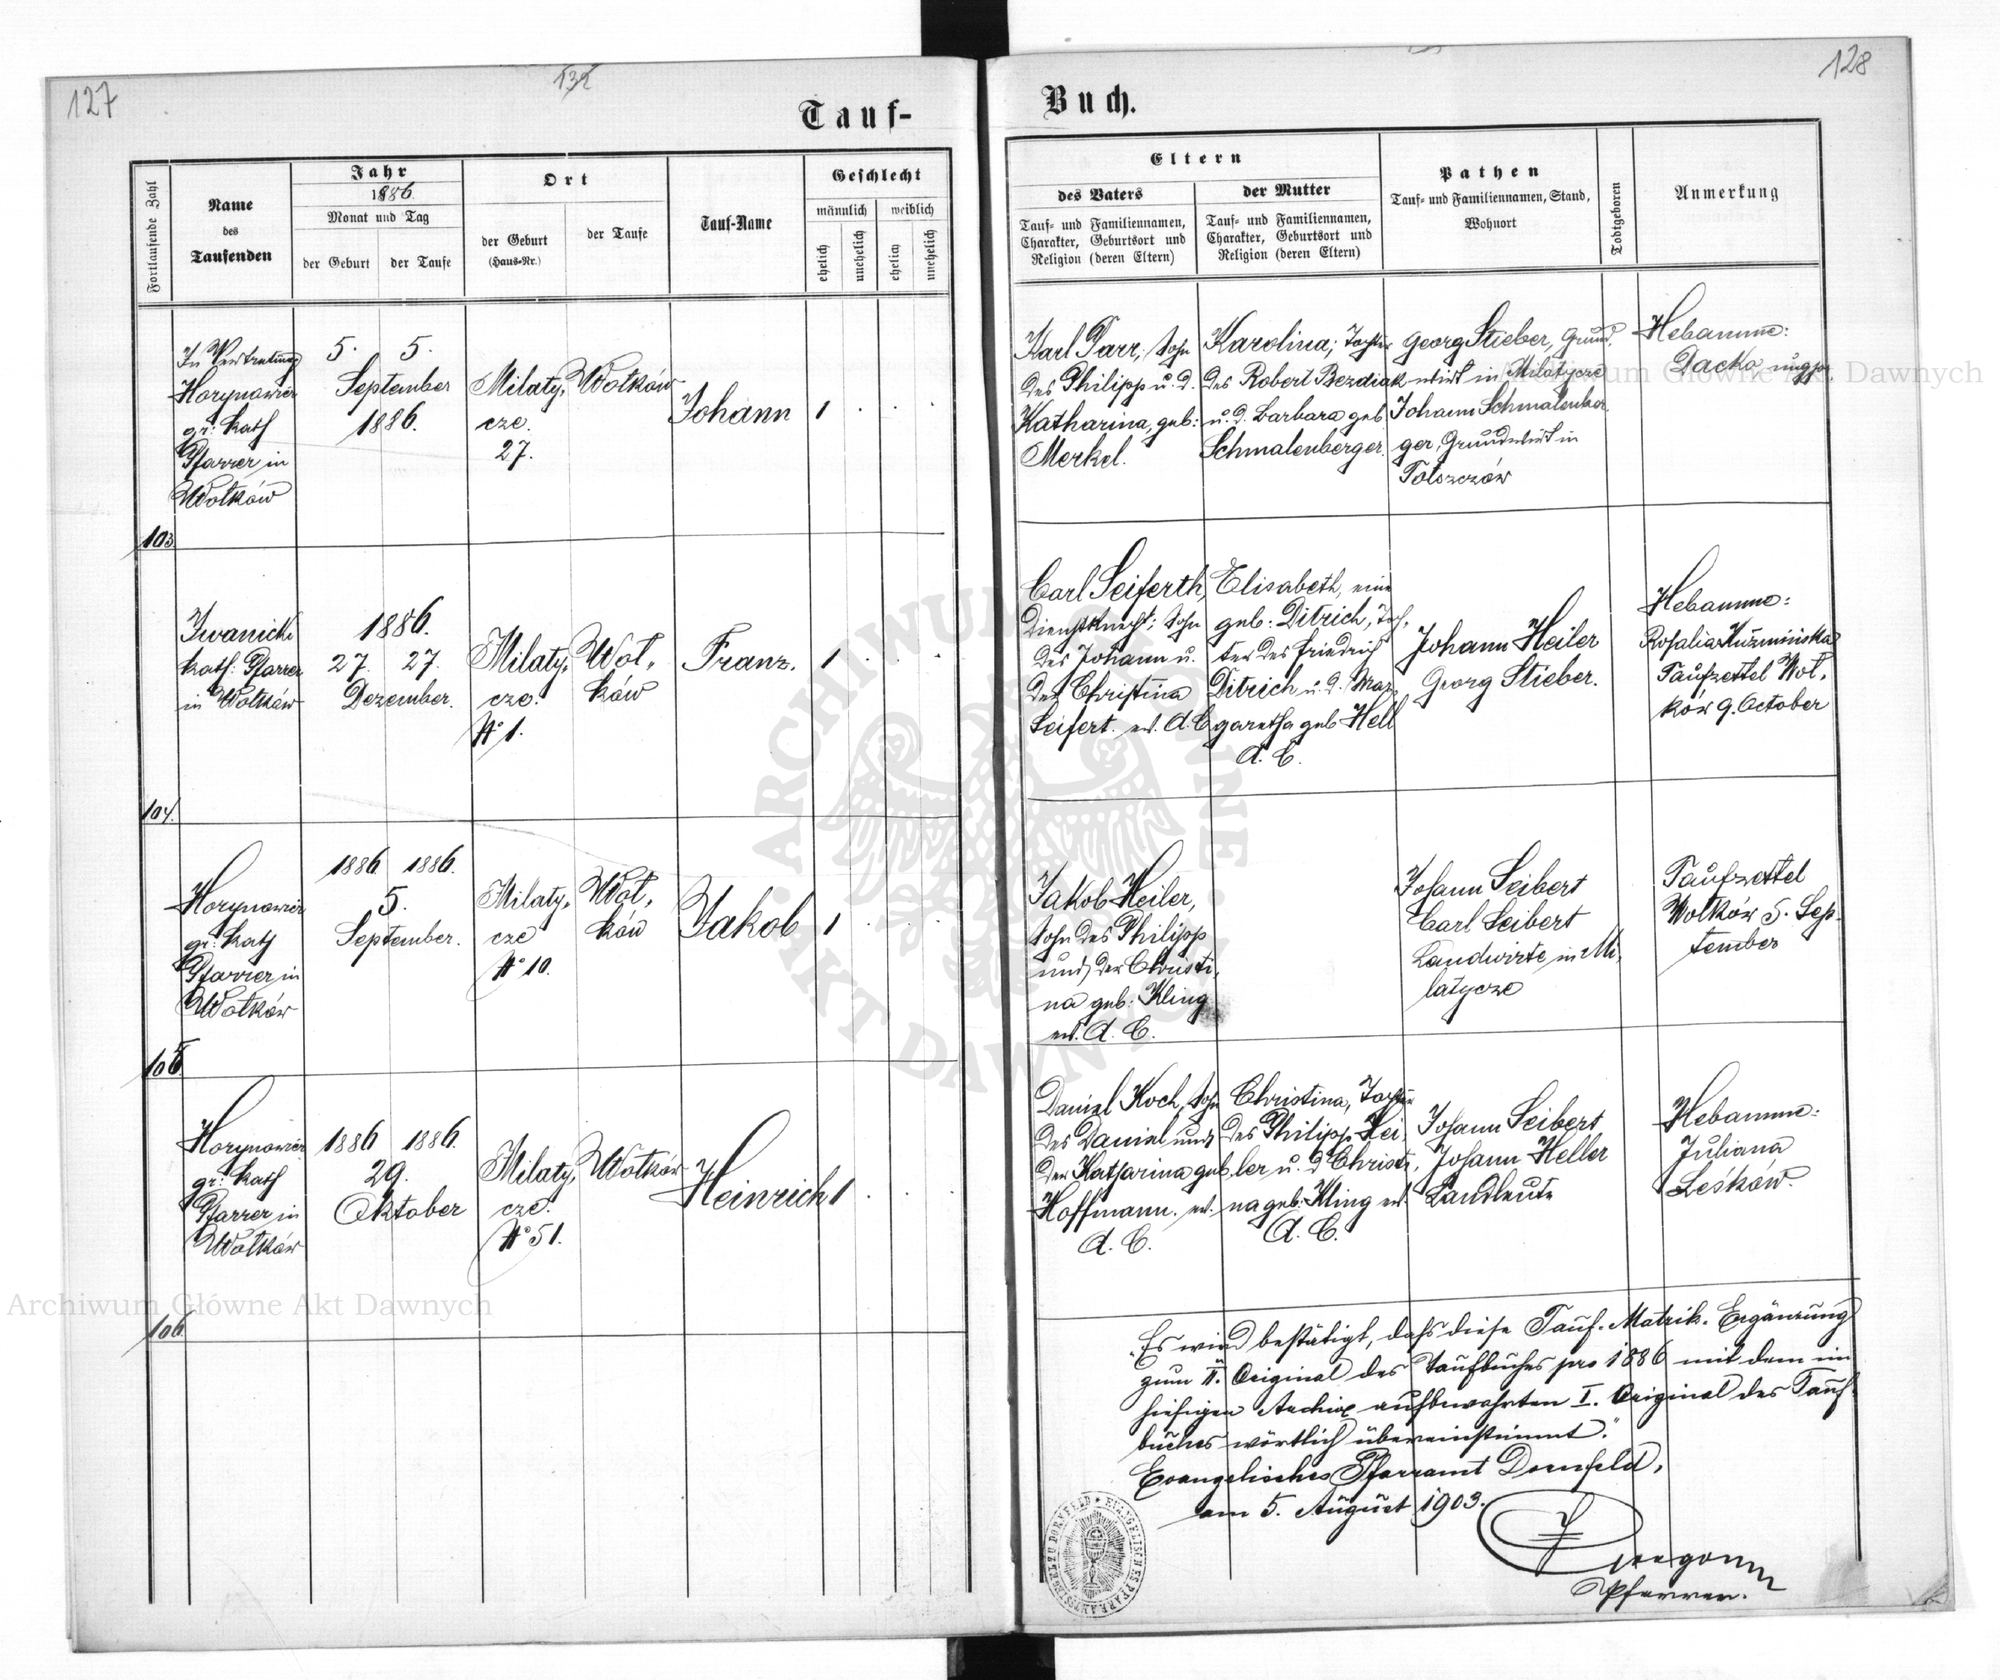 127
132
128
Tauf-
Buch.
Fortlaufende Zahl
Name
des
Taufenden
Jahr
1886
Monat und Tag
der Geburt
der Taufe
Ort
der Geburt
(Haus-Nr.)
der Taufe
Tauf-Name
Geschlecht
männlich
weiblich
ehelich
unehelich
ehelich
unehelich
Eltern
des Vaters
Tauf- und Familiennamen,
Charakter, Geburtsort und
Religion (deren Eltern)
der Mutter
Tauf- und Familiennamen,
Charakter, Geburtsort und
Religion (deren Eltern)
Pathen
Tauf- und Familiennamen, Stand,
Wohnort
Todtgeboren
Anmerkung
In Vertretung
Horynowicz
gr: kath
Pfarrer in
Wołków
5. 5.
September
1886.
Milaty,
cze.
27.
Wołków
Johann
1
Karl Parr, Sohn
des Philipp u. d.
Katharina, geb:
Merkel.
Karolina, Tochter
des Robert Bezdiak
u. d. Barbara geb
Schmalenberger.
Georg Stieber, Grund,
wirt in Milatycze
Johann Schmalenber
ger, Grundwirt in
Tołszczów
Hebamme:
Dacko
103
Iwanicki
kath: Pfarrer
in Wołków
1886.
27. 27.
Dezember.
Milaty,
cze.
No 1.
Woł,
ków
Franz.
1
Carl Seiferth,
Dienstknecht; Sohn
des Johann u.
der Christina
Seifert. ev. A. C
Elisabeth, eine
geb: Ditrich, Toch,
ter des Friedrich
Ditrich u. d. Mar,
garetha geb Hell
A. C.
Johann Heiler
Georg Stieber.
Hebamme:
Rosalia Kuźmińska
Taufzettel Woł,
ków 9. October
104.
Horynowicz
gr: kath
Pfarrer in
Wołków
1886 1886.
5.
September.
Milaty,
cze
No 10.
Woł,
ków
Jakob
1
Jakob Heiler,
Sohn des Philipp
und der Christi,
na geb: Kling
ev. A. C.
Johann Seibert
Carl Seibert
Landwirte in Mi,
latycze
Taufzettel
Wołków 5. Sep-
tember
105
Horynowicz
gr: kath
Pfarrer in
Wołków
1886 1886.
29.
Oktober
Milaty,
cze.
No 51.
Wołków
Heinrich
1
Daniel Koch, Sohn
des Daniel und
der Katharina geb
Hoffmann. ev.
A. C.
Christina, Tochter
des Philipp Hei,
ler u. d Christi,
na geb: Kling ev.
A. C.
Johann Seibert
Johann Heller
Landleute
Hebamme:
Juliana
Leśków.
106.
"Es wird bestätigt, dass diese Tauf-Matrik-Ergänzung
zum II. Original des Taufbuches pro 1886 mit dem im
hiesigen Archive aufbewahrten I. Original des Tauf-
buches wörtlich übereinstimmt."
Evangelisches Pfarramt Dornfeld,
am 5. August 1903.
Pfarrer.
EVANGELISCHES PFARRAMTSSIEGEL ZU DORNFELD
Archiwum Główne Akt Dawnych
Archiwum Główne Akt Dawnych
ARCHIWUM GŁÓWNE AKT DAWNYCH